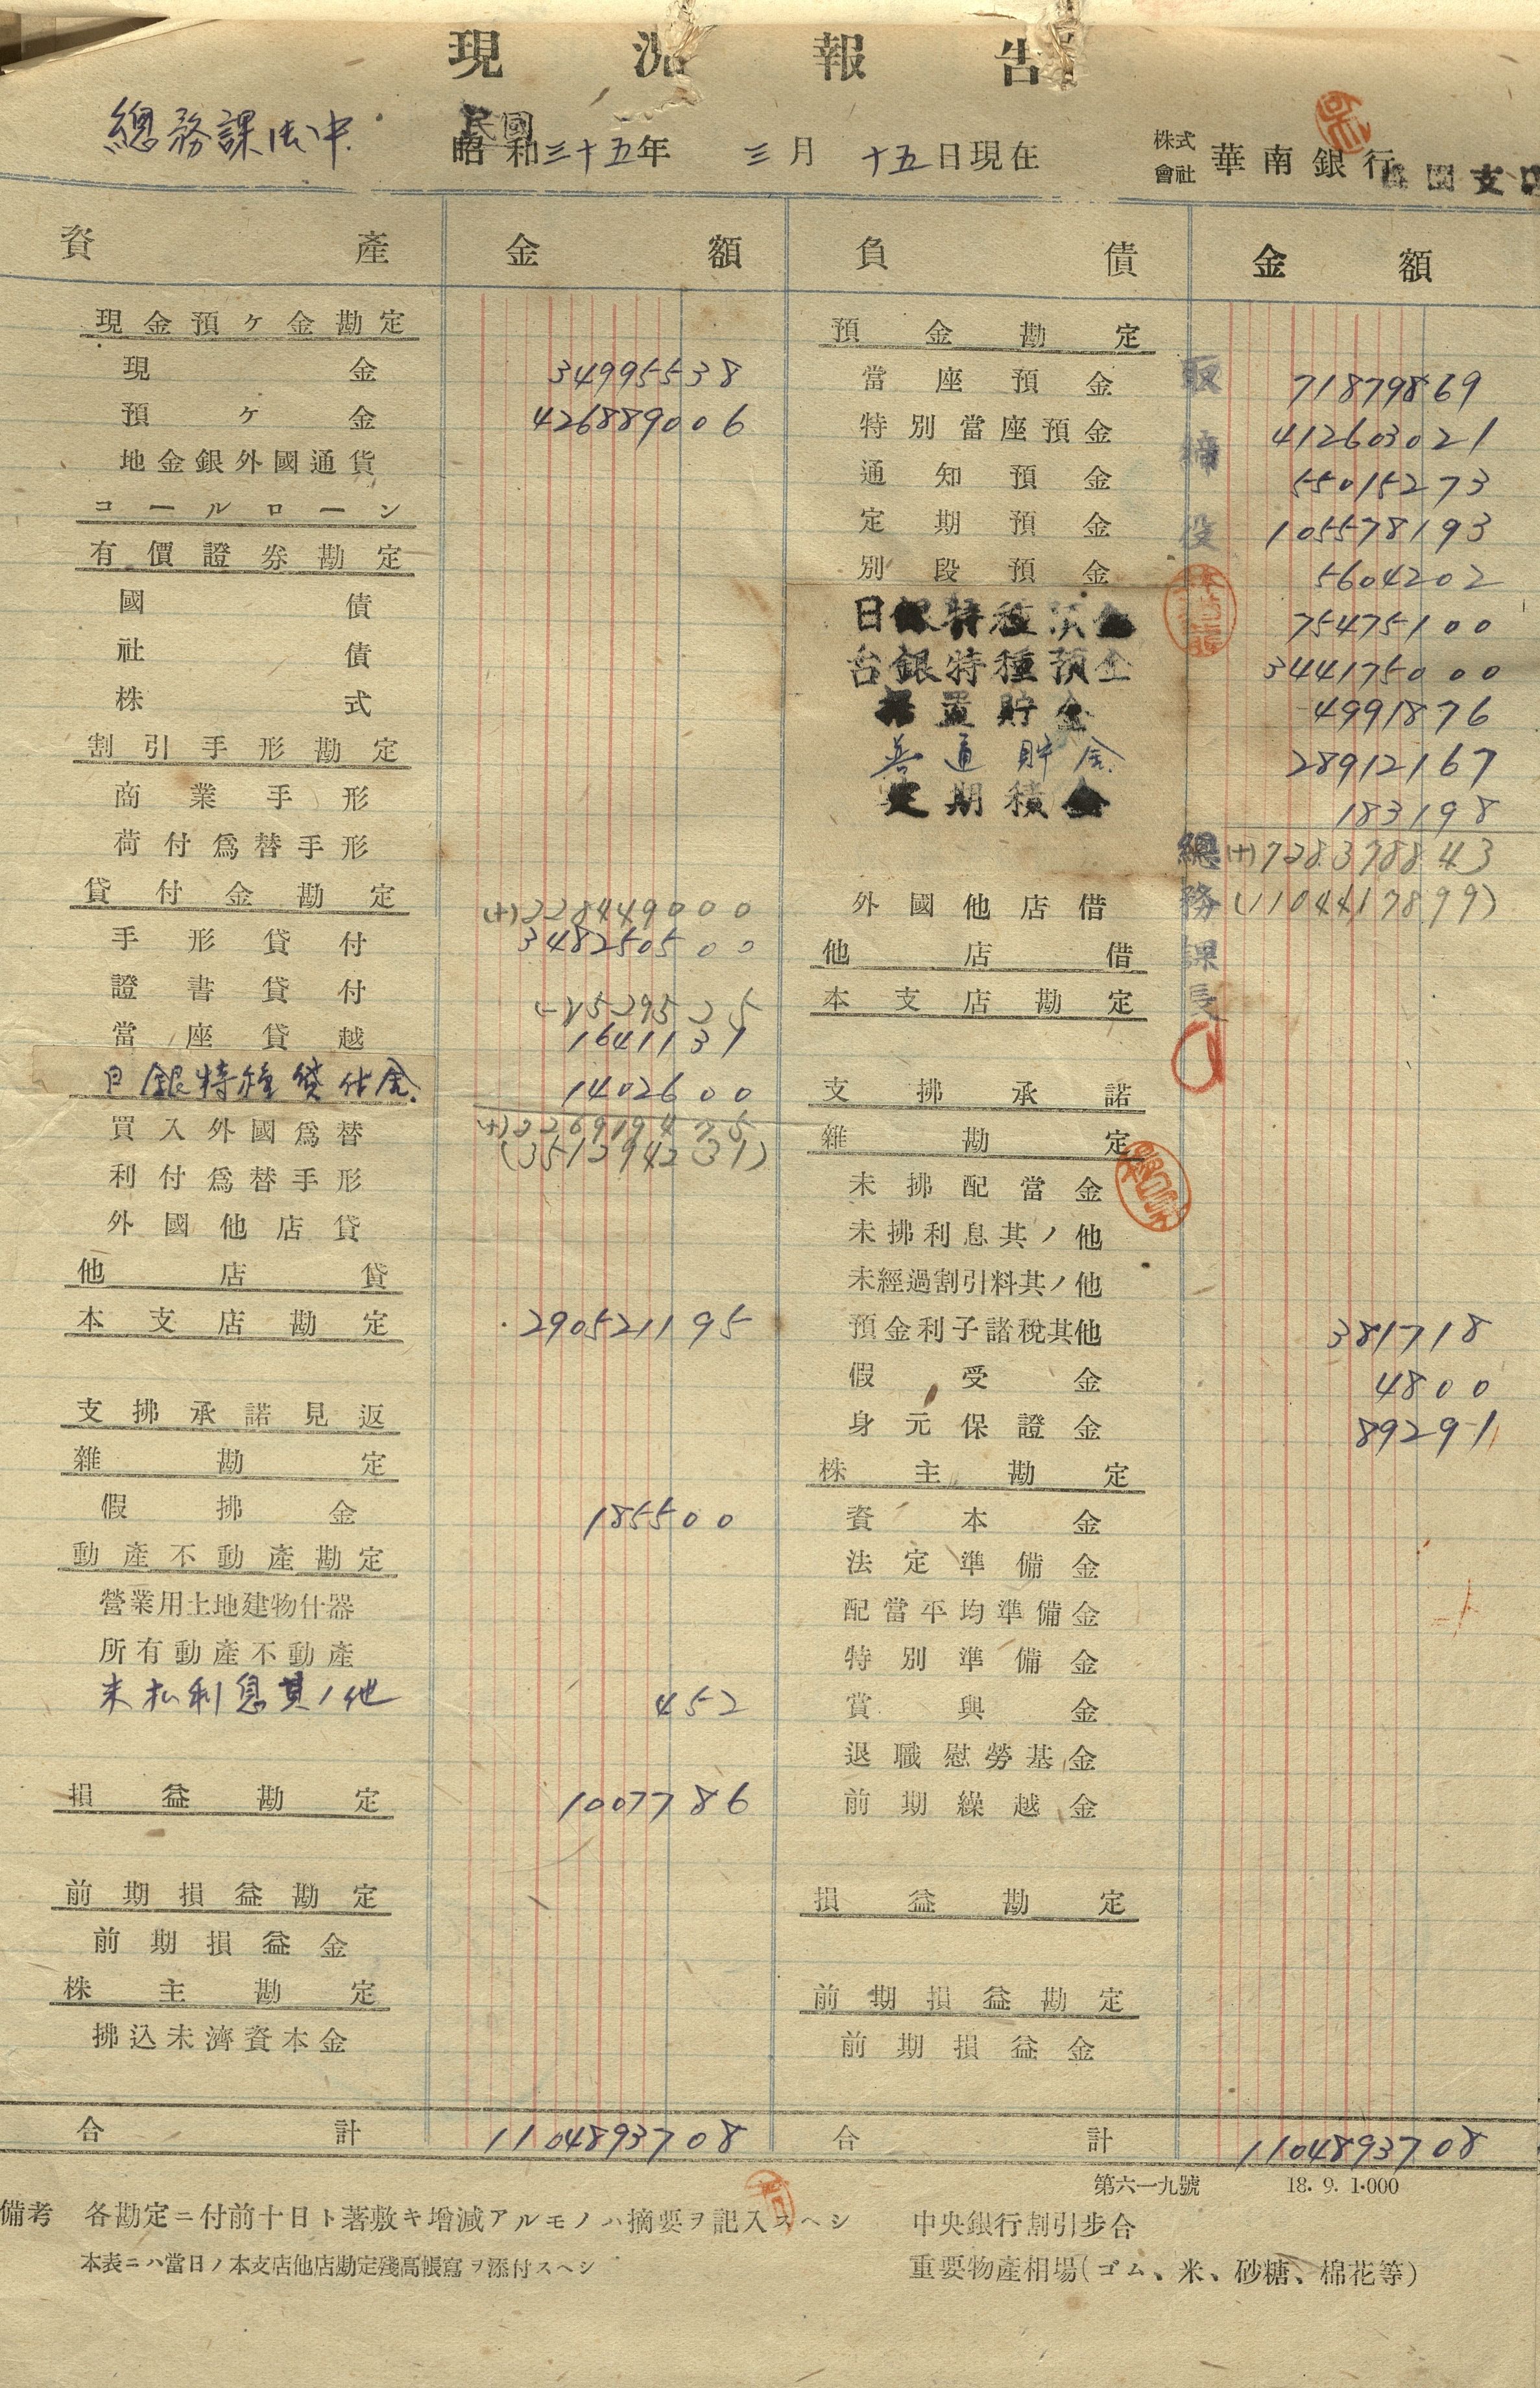 現況報告
總務課御中
民國
昭和三十五年 三月 十五日現在
株式會社 華南銀行 支
資產 金額 負債 金額
現金預ケ金勘定
現金 34995538
預ケ金 426889006
地金銀外國通貨
コールローン
有價證券勘定
國債
社債
株式
割引手形勘定
商業手形
荷付爲替手形
貸付金勘定
(+)228449000
手形貸付 348250500
證書貸付
(-)1529525
當座貸越 1641131
日銀特種貸付金 1402600
買入外國爲替 (+)226919475
(351294231)
利付爲替手形
外國他店貸
他店貸
本支店勘定 290521195
支拂承諾見返
雜勘定
假拂金 185500
動產不動產勘定
營業用土地建物什器
所有動產不動產
未払利息其ノ他 452
損益勘定 1007786
前期損益勘定
前期損益金
株主勘定
拂込未濟資本金
合計 1104893708
預金勘定
當座預金 71879869
特別當座預金 412603021
通知預金 55015273
定期預金 105578193
別段預金 5604202
日銀特種預金 75475100
台銀特種預金 344175000
据置貯金 4991876
普通貯金 28912167
定期積金 183198
(+)728378843
外國他店借 (1104417899)
他店借
本支店勘定
支拂承諾
雜勘定
未拂配當金
未拂利息其ノ他
未經過割引料其ノ他
預金利子諸稅其他 381718
假受金 4800
身元保證金 89291
株主勘定
資本金
法定準備金
配當平均準備金
特別準備金
賞與金
退職慰勞基金
前期繰越金
損益勘定
前期損益勘定
前期損益金
合計 1104893708
取締役
總務課長
第六一九號 18.9.1.000
備考 各勘定ニ付前十日ト著敷キ增減アルモノハ摘要ヲ記入スヘシ
本表ニハ當日ノ本支店他店勘定殘高帳寫ヲ添付スヘシ
中央銀行割引步合
重要物產相場(ゴム、米、砂糖、棉花等)